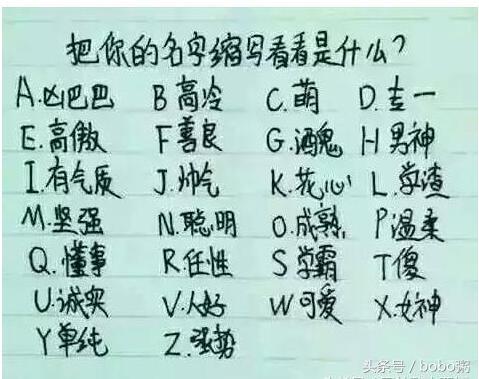 把你的名字缩写看看是什么?
A.凶巴巴 B高冷 C.萌 D.专一
E.高傲 F善良 G.酒鬼 H男神
I.有气质 J.帅气 K.花心 L.学渣
M.坚强 N.聪明 O.成熟. P温柔
Q.懂事 R.任性 S学霸 T傻
U.诚实 V.人好 W可爱 X.女神
Y单纯 Z.强势
头条号 / bobo粥